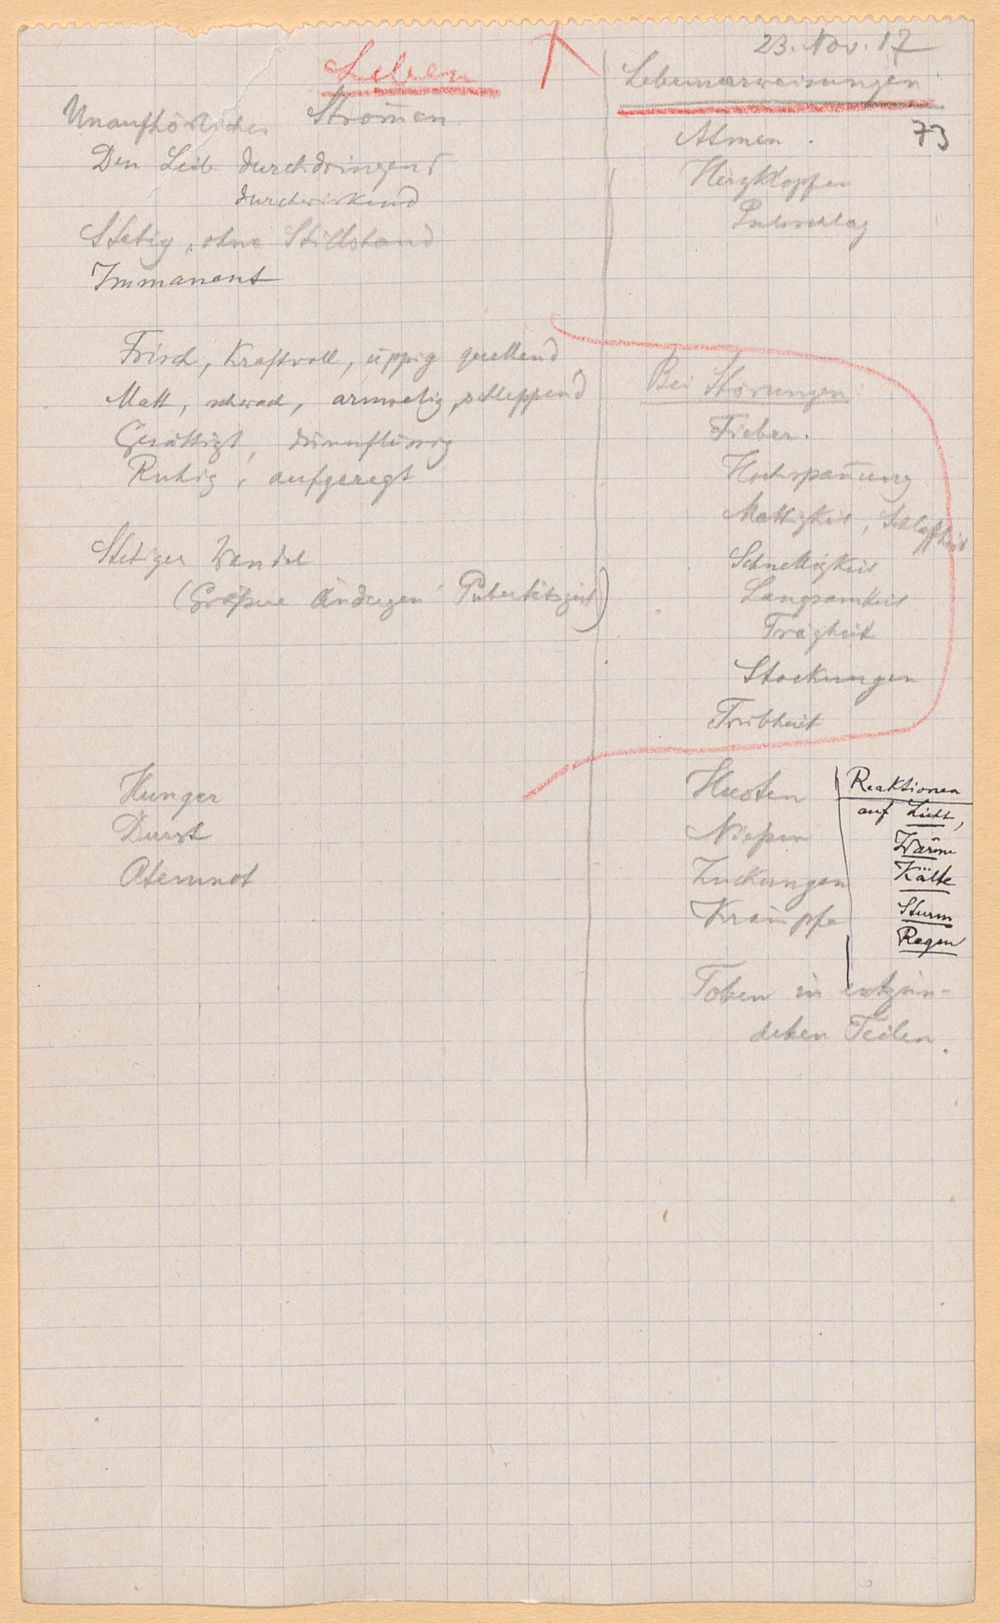 23. Nov. 17
73
Leben
Unaufhörliches Strömen
Den Leib durchdringend
durchwirkend
Stetig, ohne Stillstand
Immanent
Frisch, kraftvoll, üppig quellend
Matt, schwach, armselig, schleppend
Gesättigt, dünnflüssig
Ruhig, aufgeregt
Stetiger Wandel
(Größere Änderungen Pubertätszeit)
Hunger
Durst
Atemnot
Lebensäusserungen
Atmen.
Herzklopfen
Pulsschlag
Bei Störungen
Fieber.
Hochspannung
Mattigkeit, Schlaffheit
Schnelligkeit
Langsamkeit
Trägheit
Stockungen
Trübheit
Husten
Nießen
Zuckungen
Krämpfe
Toben in entzün-
deten Teilen.
Reaktionen
auf Licht,
Wärme
Kälte
Sturm
Regen